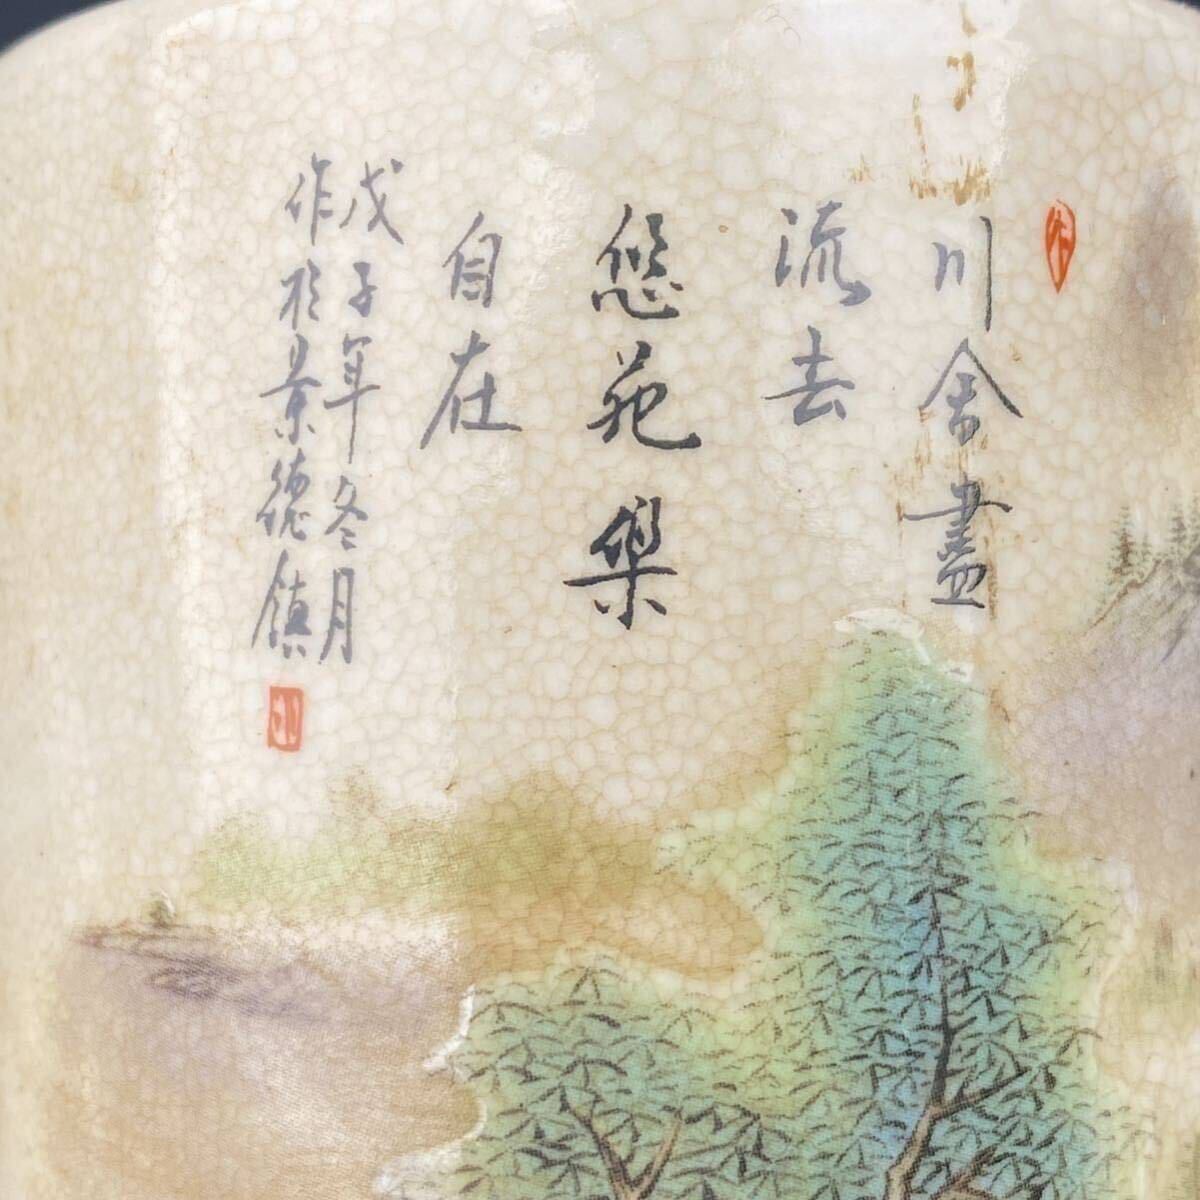 川舍盡
流去
悠苑樂
自在
戊子年冬月
作於景德鎮